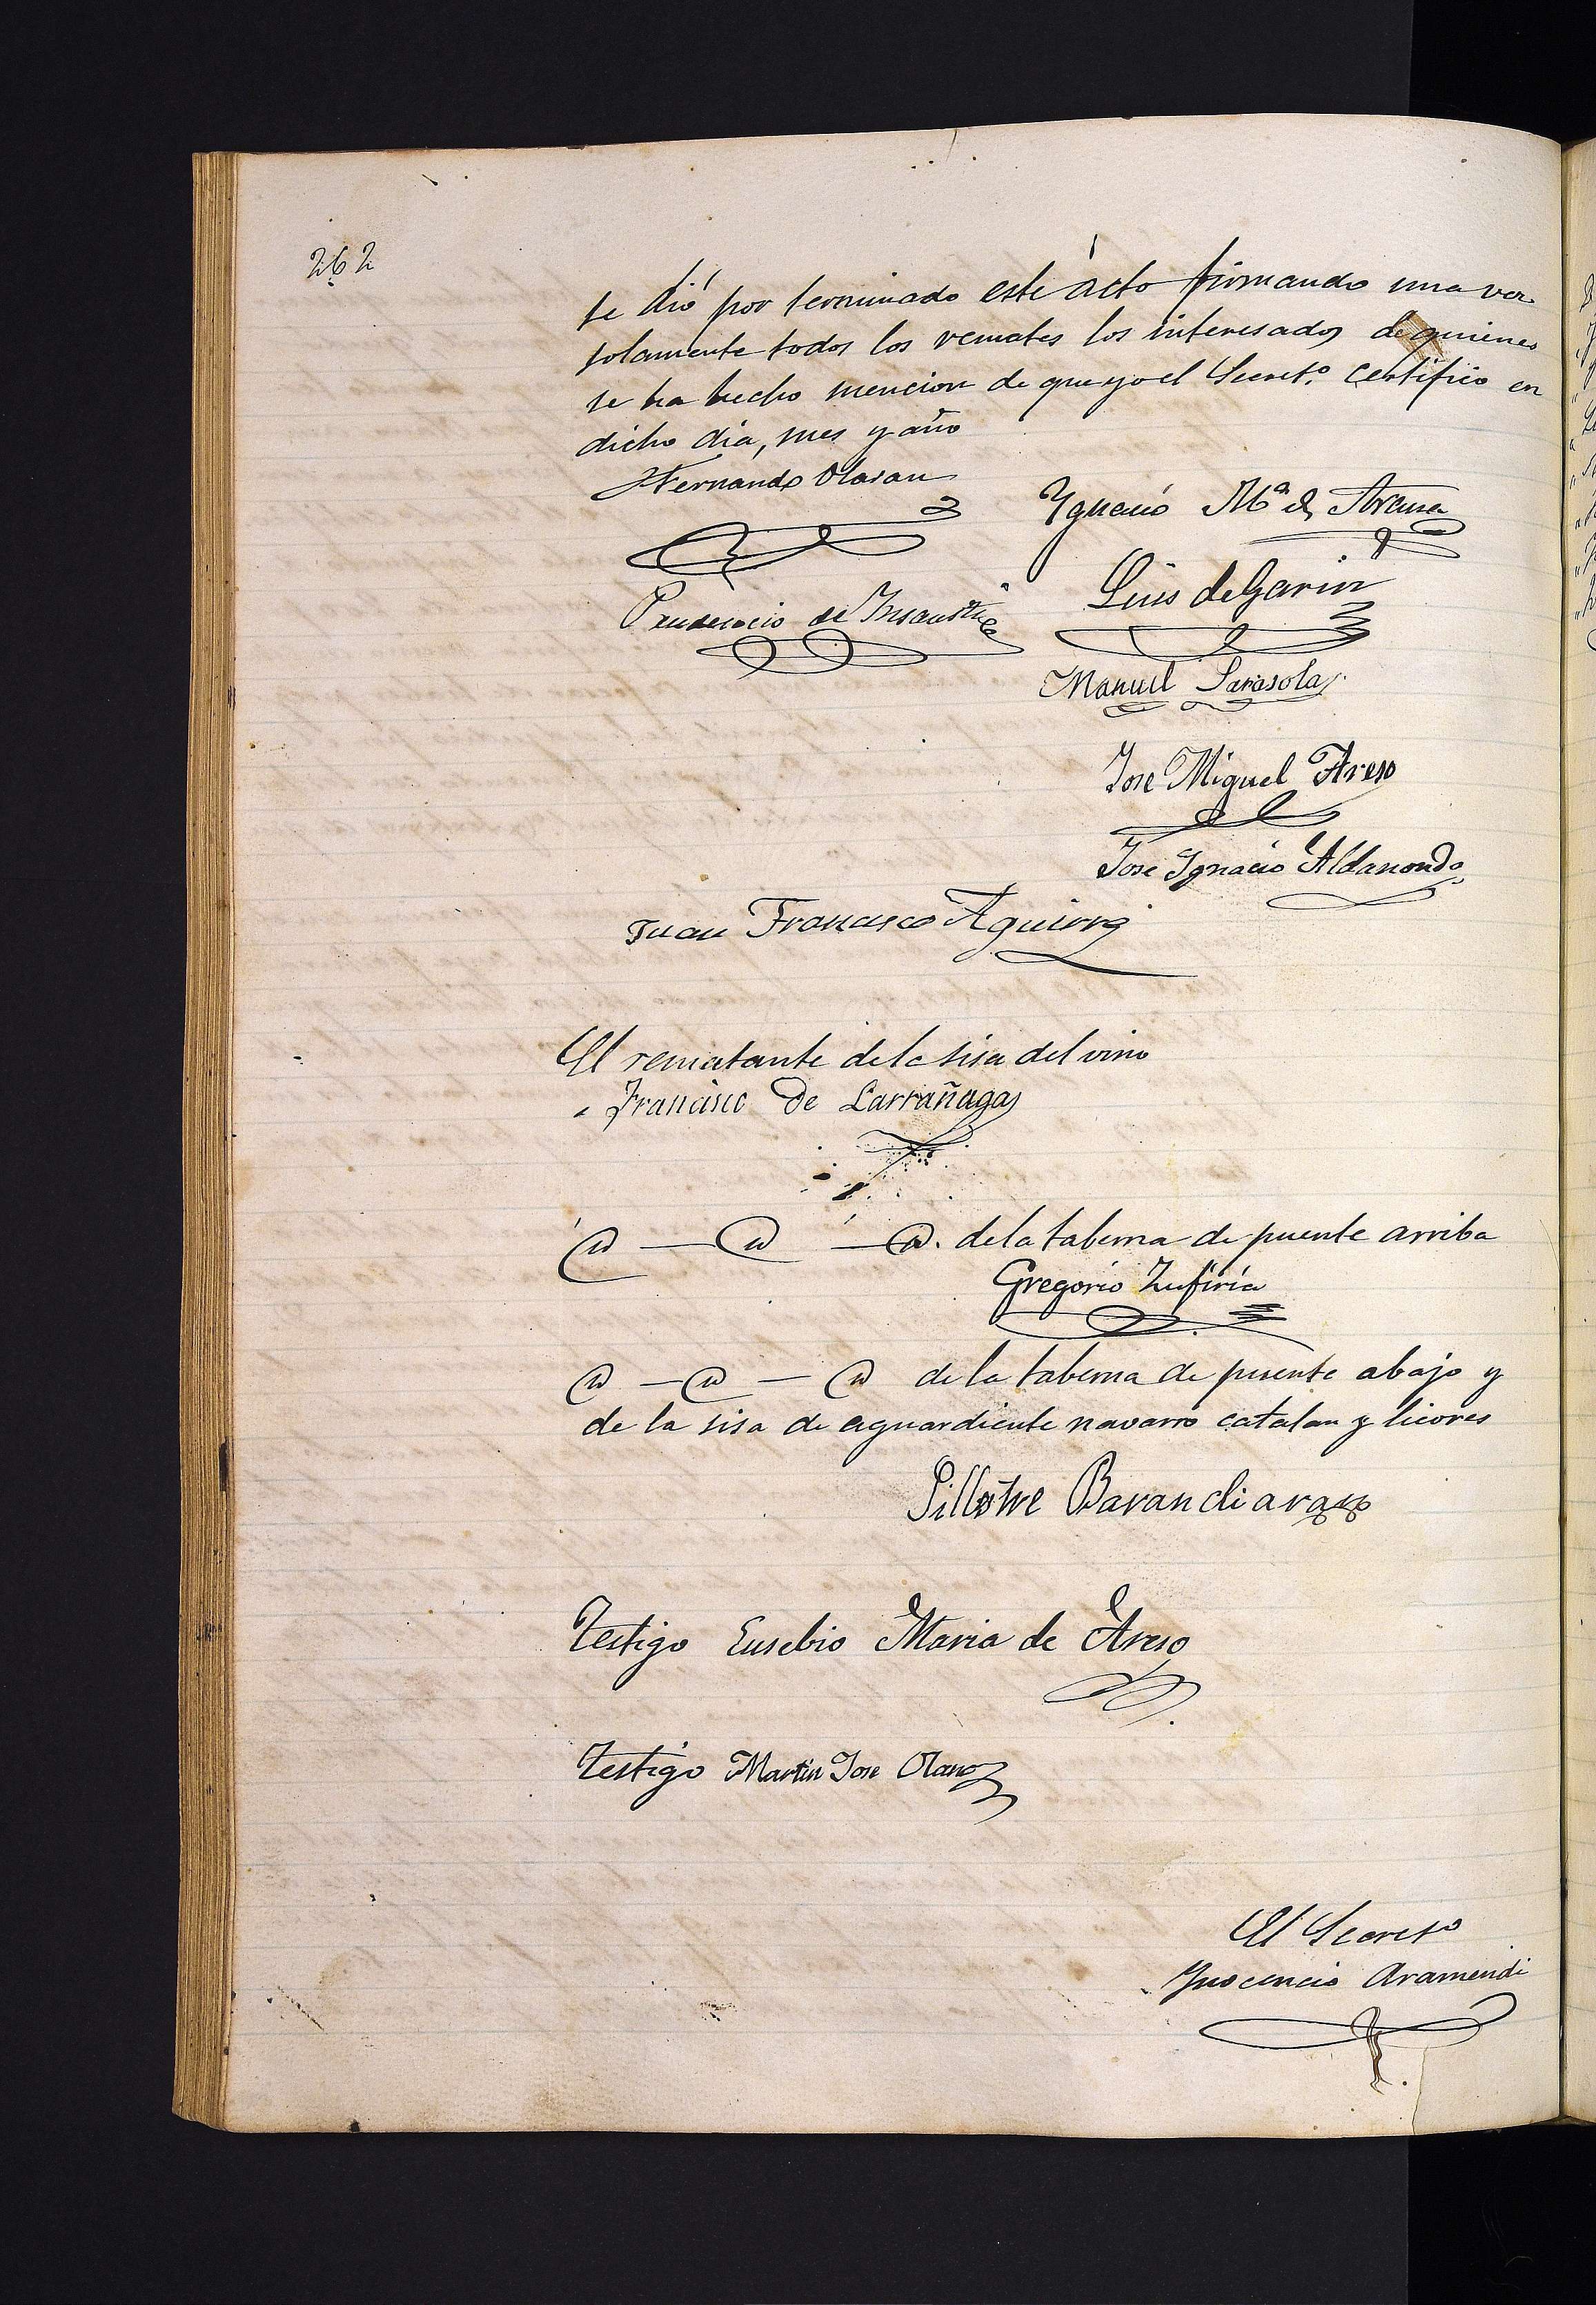 262
se dió por terminado este acto firmando una vez
solamente todos los remates los interesados de quienes
se ha hecho mencion de que yo el Secret.º certifico en
dicho dia, mes y año
Fernando Olasan
Ygnacio Mª de Arana
Prudencio de Insausti
Luis de Garin
Manuel Sarasola
Jose Miguel Areso
Jose Ygnacio Aldanondo
Juan Francisco Aguirre
El rematante de la sisa del vino
Francisco de Larrañaga
de la taberna de puente arriba
Gregorio Zufiria
de la taberna de puente abajo y
de la sisa de aguardiente navarro catalan y licores
Sillestre Barandiaran
Testigo Eusebio Maria de Areso
Testigo Martin Jose Olano
El Secretº
Ynocencio Aramendi